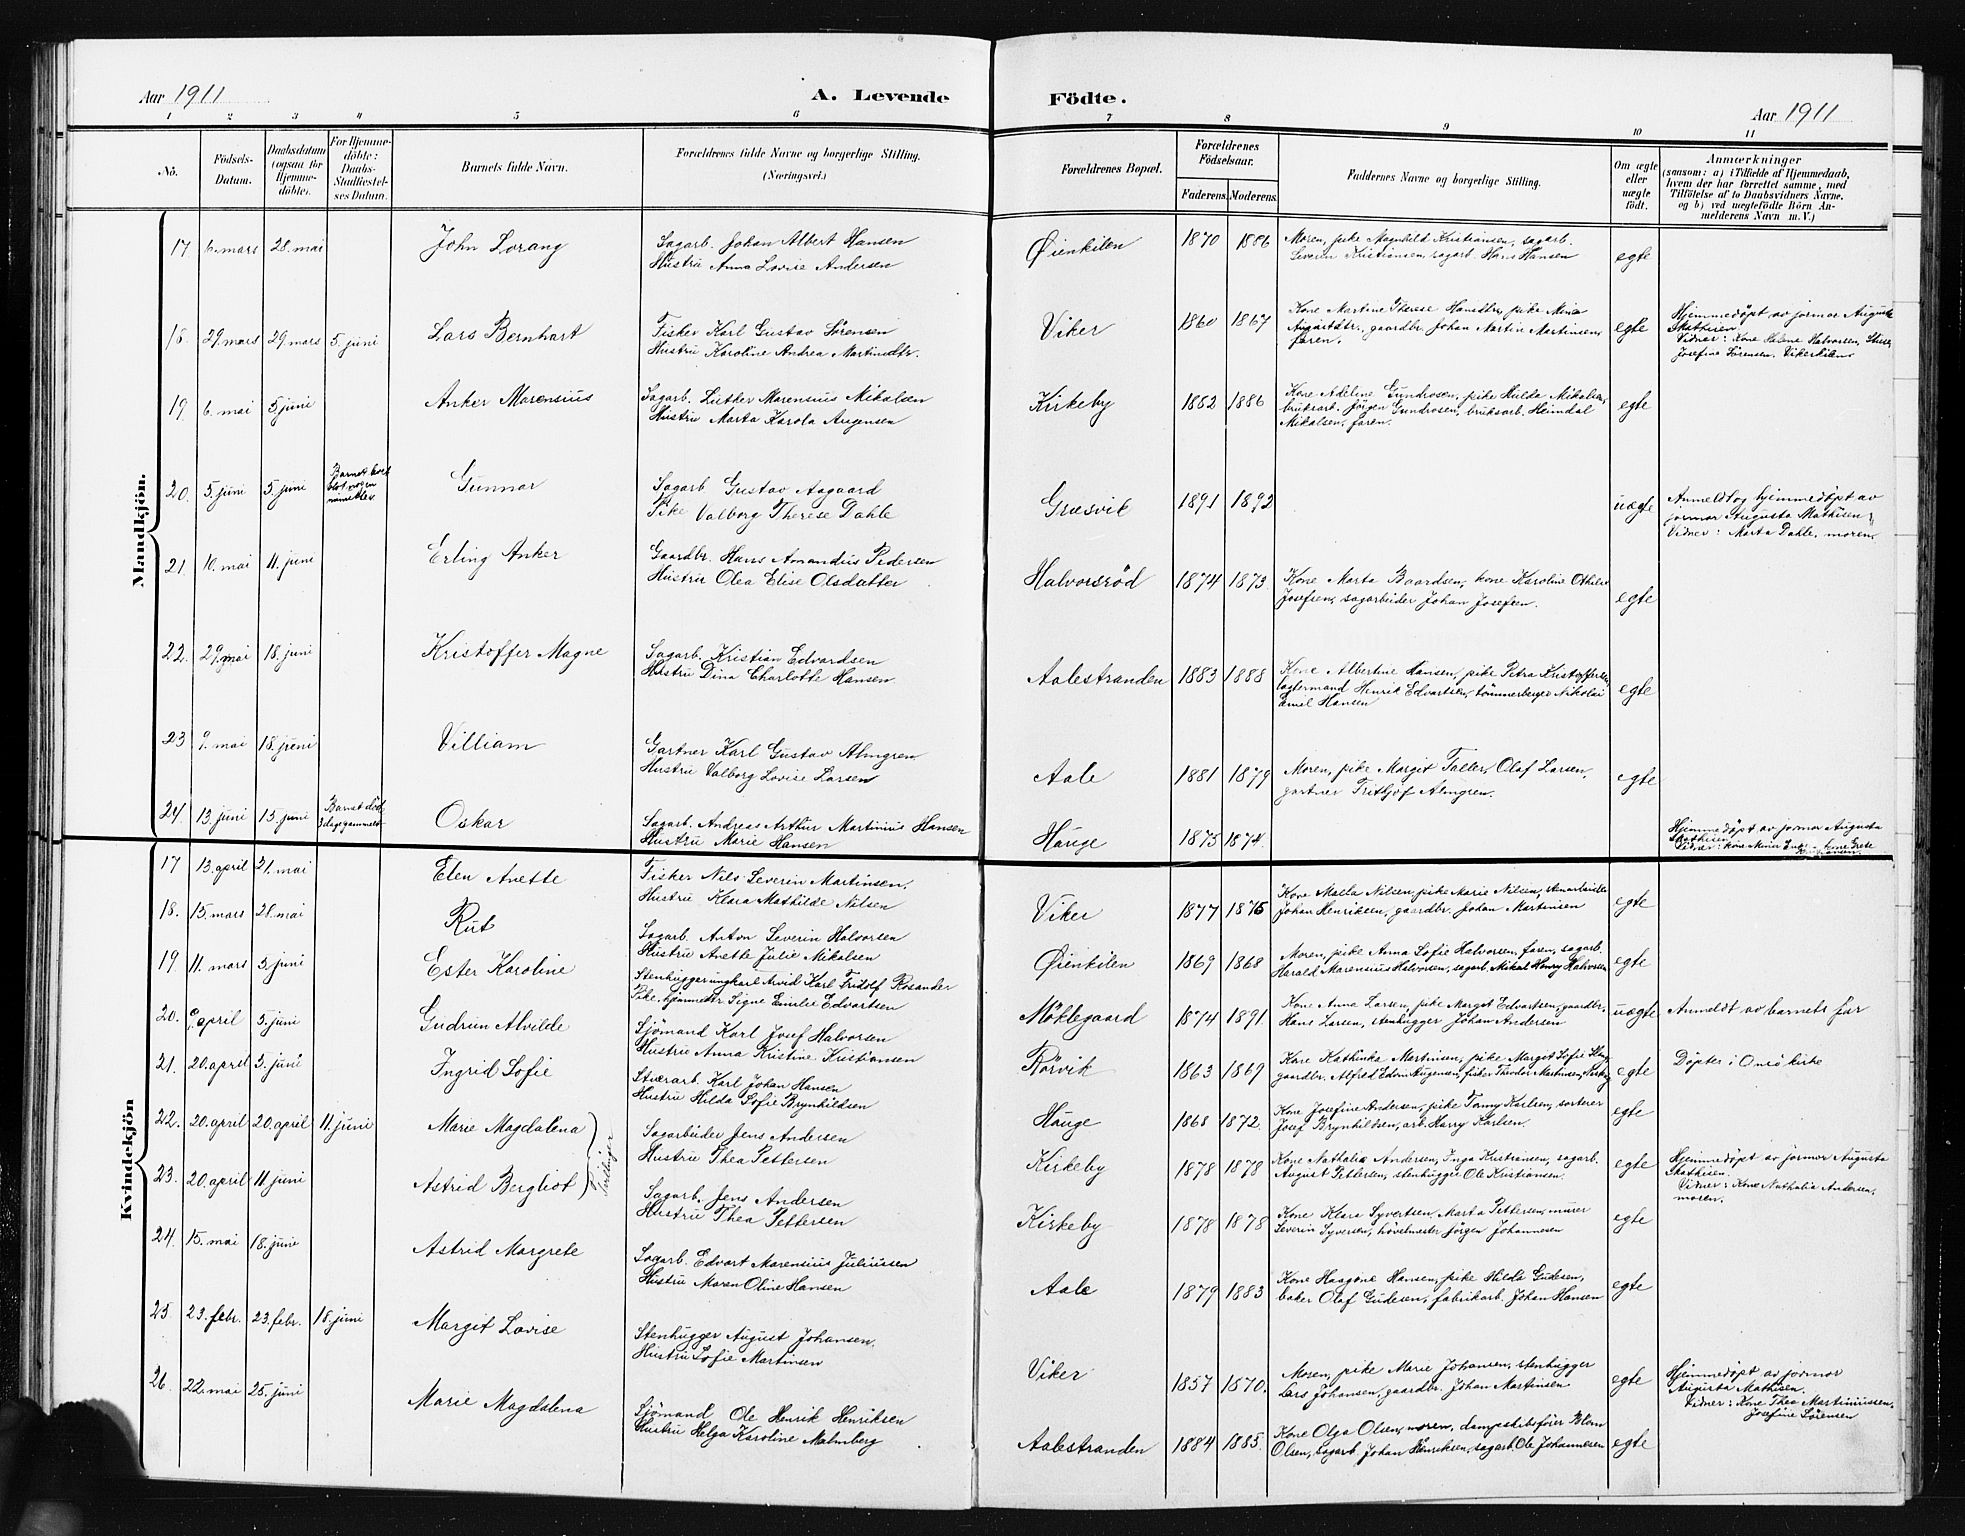 Aar 1911 A. Levende
Födte. Aar 1911
1 2 3 4 5 6 7 8 9 10 11
No.
Födsels-Datum.
Daabsdatum (ogsaa for Hjemme-döbte).
For Hjemme-döbte: Daabs-Stadfæstelses Datum.
Barnets fulde Navn.
Forældrenes fulde Navne og borgerlige Stilling. (Næringsvei.)
Forældrenes Bopæl.
Forældrenes Födselsaar.
Faderens. Moderens.
Faddernes Navne og borgerlige Stilling.
Om ægte eller uægte födt.
Anmærkninger
(saasom: a) i Tilfælde af Hjemmedaab, hvem der har forrettet samme, med Tilföielse af to Daabsvidners Navne. og b) ved uægtefödte Börn Anmelderens Navn m. V.)
Mandkjön.
17 6. mars 28. mai John Lorang
Sagarb. Johan Albert Hansen
Hustru Anna Lovise Andersen
Øienkilen 1870 1886
Moren, pike Magnhild Kristiansen, sagarb.
Severin Kristiansen, sagarb. Hans Hansen
egte
18. 29. mars 29. mars 5. juni Lars Bernhart
Fisker Karl Gustav Sørensen
Hustru Karoline Andrea Martinsdtr.
Viker 1860 1867
Kone Martine Therese Hansdtr, pike Mina
Augustdtr., gaardbr. Johan Martin Martinsen,
faren.
egte
Hjemmedøpt av jormor Augusta
Mathisen
Vidner: Kone Helene Halvorsen,
Josefine Sørensen, Vikerkilen
19 6. mai 5. juni Anker Marensius
Sagarb. Luther Marensius Mikalsen
Hustru Marta Karola Augensen
Kirkeby 1882 1886
Kone Adeline Gundrosen, pike Hulda Mikalsen,
bruksarb. Jörgen Gundrosen, bruksarb. Heimdal
Mikalsen, faren.
egte
20. 5. juni 5. juni
Barnet levet
blot nogen
minutter
Gunnar
Sagarb Gustav Aagaard
Pike Valborg Therese Dahle
Græsvik 1891 1892
uægte
Anmeldt og hjemmedøpt av
jormor Augusta Mathisen
Vidner: Marta Dahle, moren
21. 10. mai 11. juni Erling Anker
Gaardbr. Hans Amandus Pedersen
Hustru Olea Elise Olsdatter
Halvorsrød 1874 1873.
Kone Marta Baardsen, kone Karoline Othilie
Josefsen, sagarbeider Johan Josefsen.
egte
22. 29. mai 18. juni Kristoffer Magne
Sagarb. Kristian Edvardsen
Hustru Dina Charlotte Hansen
Aalestranden 1883 1888
Kone Albertine Hansen, pike Petra Kristoffersen,
lagermand Henrik Edvartsen, tømmerbergen Nikolai
Emil Hansen
egte
23 9. mai 18. juni Villiam
Gartner Karl Gustav Almgren
Hustru Valborg Lovise Larsen
Aale 1881 1879
Moren, pike Margit Faller, Olaf Larsen,
gartner Fritjof Almgren.
egte
24. 13. juni 15. juni
Barnet död,
3 dage gammelt
Oskar
Sagarb. Andreas Arthur Martinius Hansen
Hustru Marie Hansen
Hauge 1875 1874.
Hjemmedøpt av jormor Augusta
Mathisen
Kvindekjön
17 13. april 21. mai Elen Anette
Fisker Nils Severin Martinsen.
Hustru Klara Mathilde Nilsen
Viker 1877 1875
Kone Malla Nilsen, pike Marie Nilsen, stenarbeider
Johan Henriksen, gaardbr. Johan Martinsen
egte
18. 15. mars 28. mai Rut
Sagarb. Anton Severin Halvorsen
Hustru Anette Julie Mikalsen
Øienkilen 1869 1868
Moren, pike Anna Sofie Halvorsen, faren, sagarb.
Harald Marensius Halvorsen, sagarb. Mikal Henry Halvorsen
egte
19 11. mars 5. juni Ester Karoline
Stenhuggerungkarl Arvid Karl Fridolf Rosander
Pike, hjemmedtr Signe Emilie Edvartsen
Møklegaard 1874 1891.
Kone Anna Larsen, pike Margot Edvartsen, gaardbr.
Hans Larsen, stenhugger Johan Andersen
uægte
Anmeldt av barnets far
20. 9. april 5. juni Gudrun Alvilde
Sjömand Karl Josef Halvorsen
Hustru Anna Kristine Kristiansen
Rörvik 1863 1869
Kone Kathinka Martinsen, pike Margot Sofie
gaardbr. Alfred Edvin Augensen, fisker Theodor Martinsen,
egte
Døpter i Onsö kirke
21. 20. april 5. juni Ingrid Sofie
Stuerarb. Karl Johan Hansen
Hustru Hilda Sofie Brynhildsen
Hauge 1868 1872.
Kone Josefine Andersen, pike Fanny Karlsen, sorterer
Josef Brynhildsen, arb. Harry Karlsen.
egte
22. 20. april 20. april 11. juni Marie Magdalena
Sagarbeider Jens Andersen
Hustru Thea Pettersen
Kirkeby 1878 1878
Kone Nathalia Andersen, Inga Kristiansen, sagarb.
August Pettersen, stenhugger Ole Kristiansen.
egte
Hjemmedøpt av jormor Augusta
Mathisen.
Vidner: Kone Nathalia Andersen,
moren.
Tvillinger
23. 20. april 11. juni Astrid Bergliot
Sagarb. Jens Andersen
Hustru Thea Pettersen
Kirkeby 1878 1878
Kone Klara Syvertsen, Marta Pettersen, murer
Severin Syversen, høvelmester Jørgen Johannesen
egte
24. 15. mai 18. juni Astrid Margrete
Sagarb. Edvart Marensius Juliussen
Hustru Maren Oline Hansen
Aale 1879 1883
Kone Haagine Hansen, pike Hilda Gudesen,
baker Olaf Gudesen, fabrikarb. Johan Hansen
egte
25. 23. febr. 23. febr. 18. juni Margit Lovise
Stenhugger August Johansen.
Hustru Sofie Martinsen
Viker 1857 1870.
Moren, pike Marie Johansen, stenhugger
Lars Johansen, gaardbr. Johan Martinsen
egte
Hjemmedøpt av jormor
Augusta Mathisen.
Vidner: Kone Thea Martinuissen,
Josefine Sørensen
26. 22. mai 25. juni Marie Magdalena
Sjömand Ole Henrik Henriksen
Hustru Helga Karoline Malmberg
Aalestranden 1884 1885.
Kone Olga Olsen, moren, dampskibsfører Blom
Olsen, sagarb. Johan Henriksen, sagarb. Ole Johannesen
egte